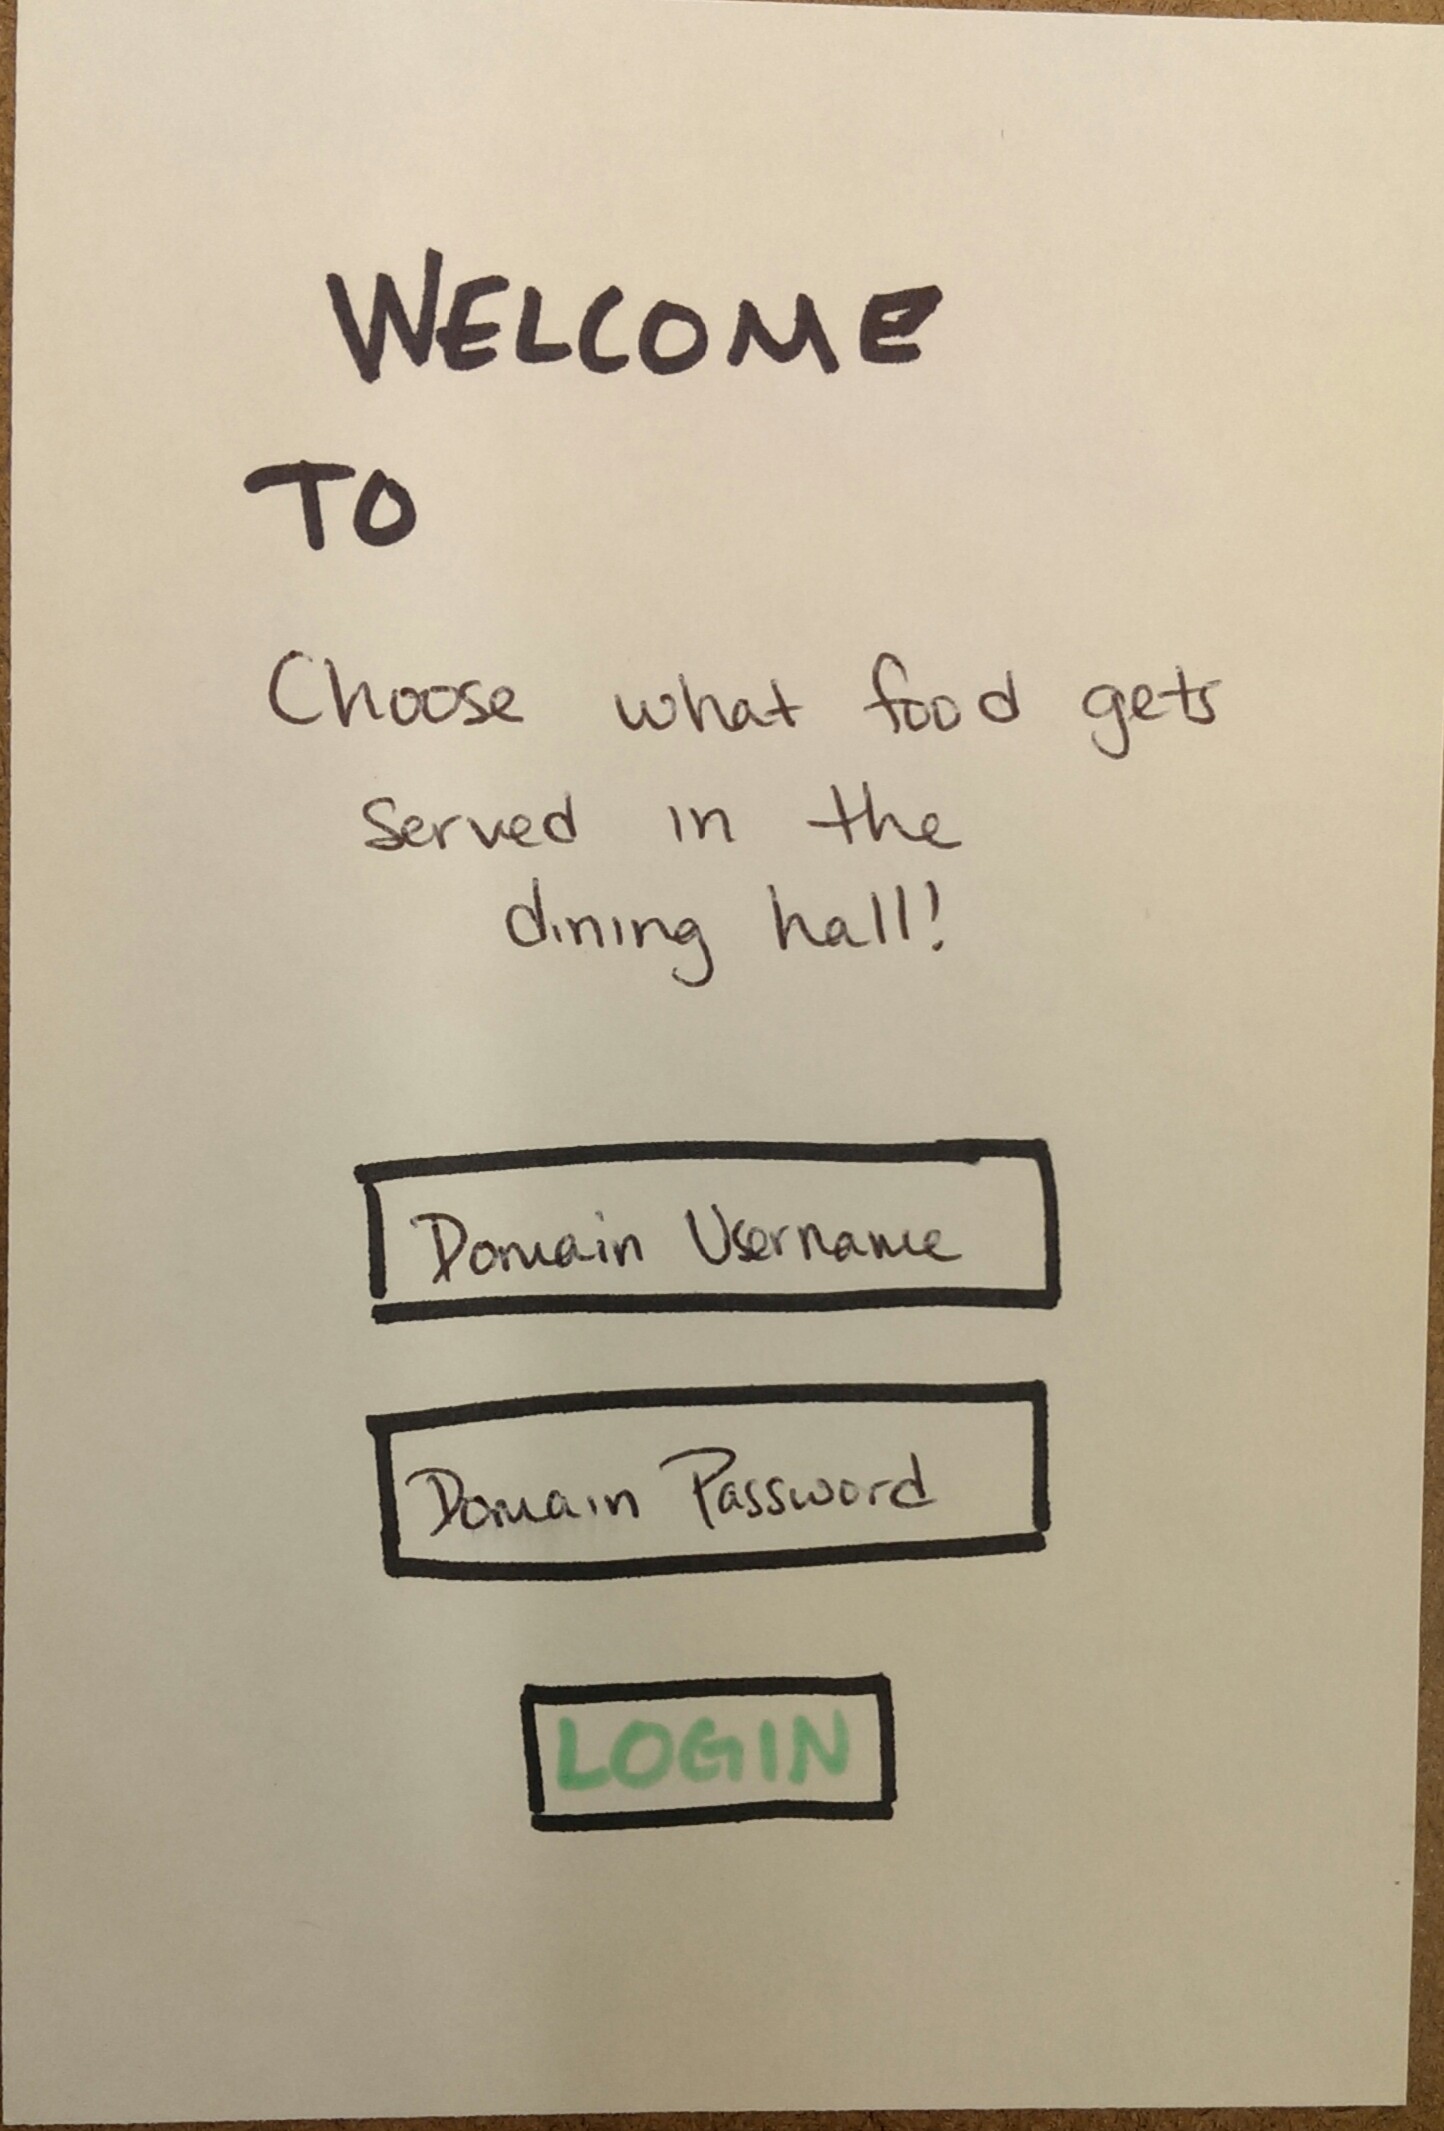 WELCOME
TO
Choose what food gets
served in the
dining hall!
Domain Username
Domain Password
LOGIN